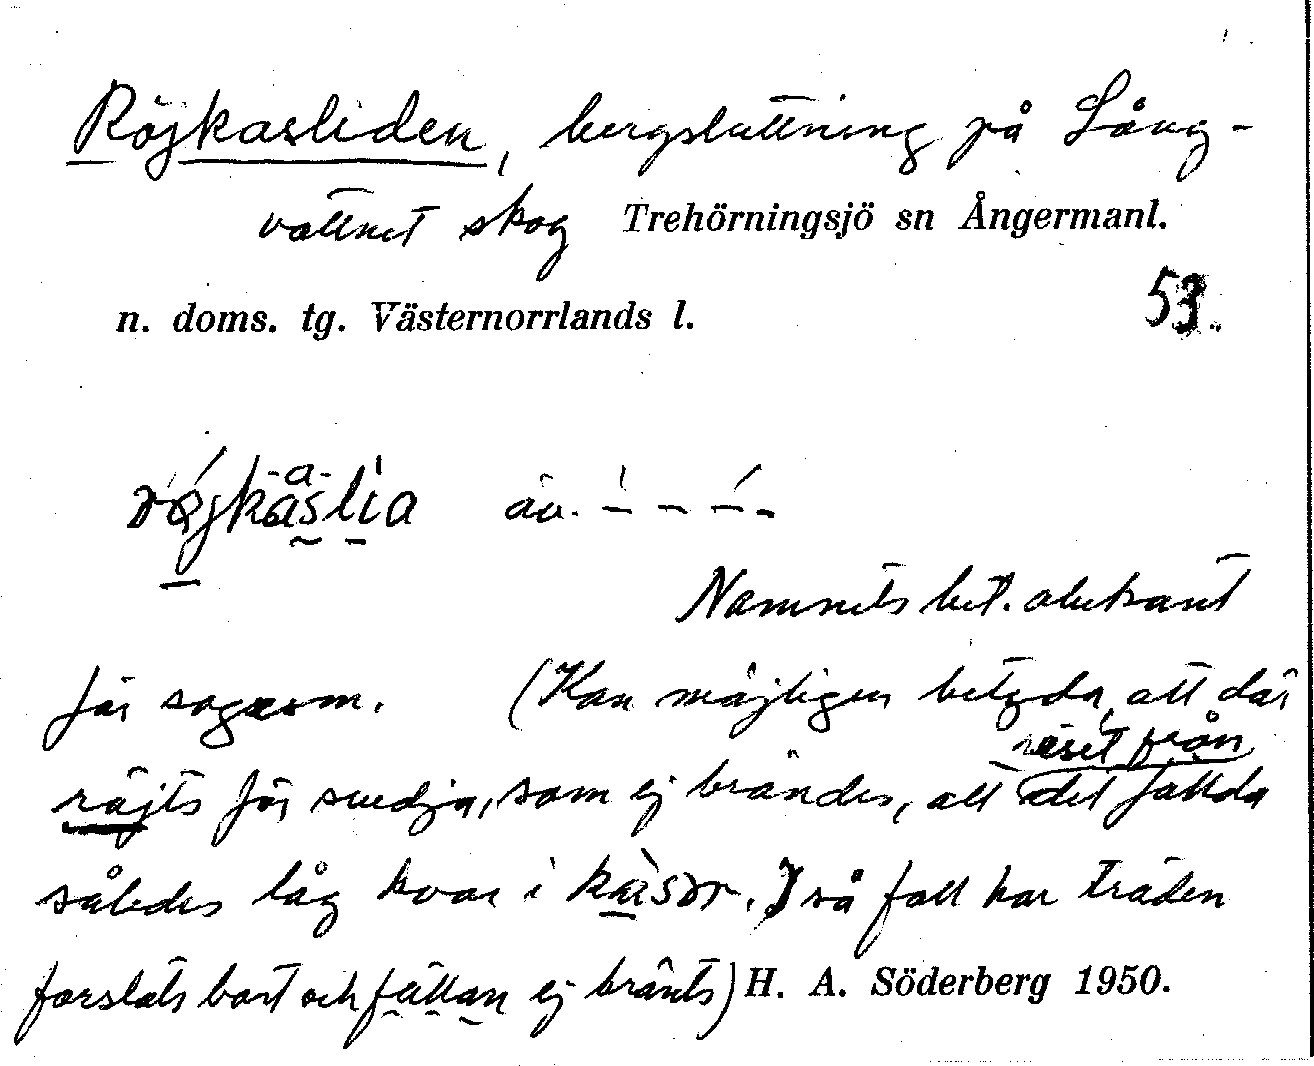 Röjkasliden, bergsluttning på Lång-
vattnet skog Trehörningsjö sn Ångermanl.
n. doms. tg. Västernorrlands l.
53.
röjkaslia äv.
Namnets bet. obekant
för sagesm. (Kan möjligen betyda, att där
röjts för svedja, som ej brändes, att riset från det fällda
således låg kvar i kasor. I så fall har träden
forslats bort och fällan ej bränts) H. A. Söderberg 1950.